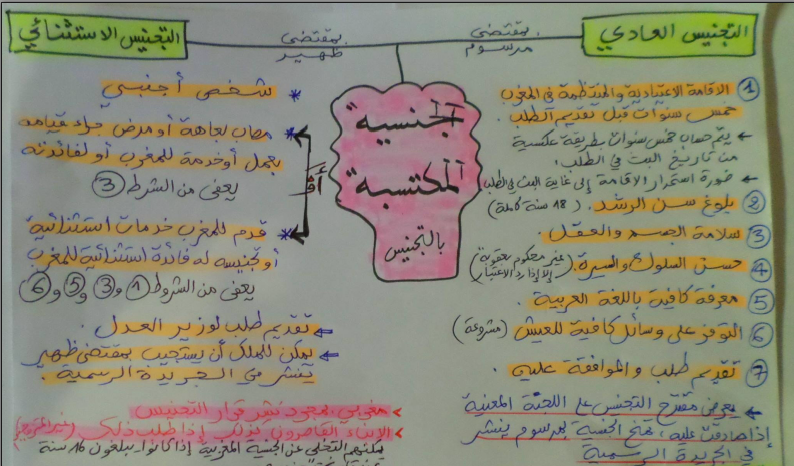 التجنيس العادي
بمقتضى
مرسوم
بمقتضى
ظهير
التجنيس الاستثنائي
الجنسية
المكتسبة
بالتجنيس
① الاقامة الاعتيادية والمنتظمة في المغرب
خمس سنوات قبل تقديم الطلب.
← يتم حساب خمس سنوات بطريقة عكسية
من تاريخ البت في الطلب.
← ضرورة استمرار الاقامة إلى غاية البت في الطلب
② بلوغ سن الرشد. (18 سنة كاملة)
③ سلامة الجسم والعقل.
④ حسن السلوك والسيرة. (غير محكوم بعقوبة
إلا إذا رد الاعتبار)
⑤ معرفة كافية باللغة العربية
⑥ التوفر على وسائل كافية للعيش (مشروعة)
⑦ تقديم طلب والموافقة عليه.
← يعرض مقترح التجنيس على اللجنة المعنية
إذا صادقت عليه، تمنح الجنسية بمرسوم ينشر
في الجريدة الرسمية
* شخص أجنبي
* مصاب بعاهة أو مرض جراء قيامه
بعمل أو خدمة للمغرب أو لفائدته
يعفى من الشرط ③
أو
* قدم للمغرب خدمات استثنائية
أو تجنيسه له فائدة استثنائية للمغرب
يعفى من الشروط ① و ③ و ⑤ و ⑥
⇐ تقديم طلب لوزير العدل.
⇐ يمكن للملك أن يستجيب بمقتضى ظهير
ينشر في الجريدة الرسمية.
> مغربي، بمجرد نشر قرار التجنيس
> الأبناء القاصرون كذلك إذا طلب ذلك (غير المتزوجين)
يمكنهم التخلي عن الجنسية المغربية إذا كانوا يبلغون 16 سنة